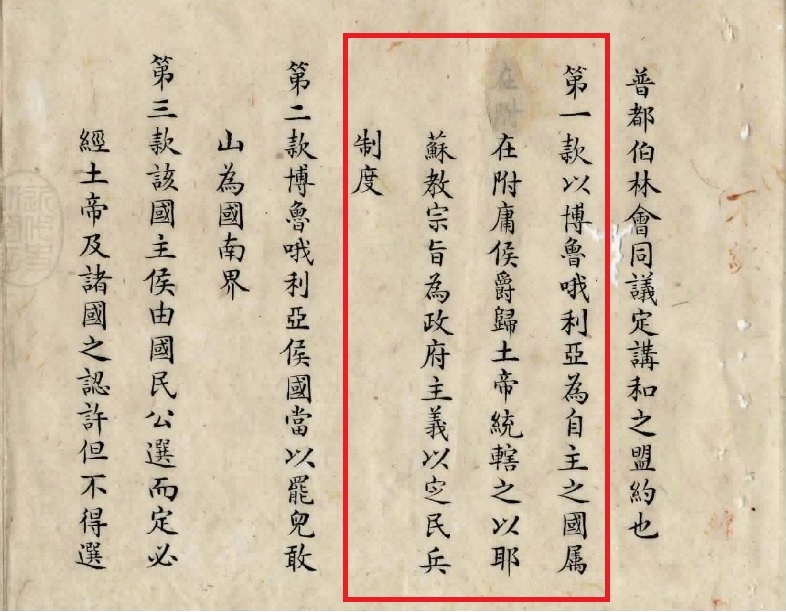 普都伯林會同議定講和之盟約也
第一款以博魯哦利亞為自主之國属
在附庸侯爵歸土帝統轄之以耶
蘇教宗旨為政府主義以定民兵
制度
第二款博魯哦利亞侯國當以罷兒敢
山為國南界
第三款該國主侯由國民公選而定必
經土帝及諸國之認許但不得選